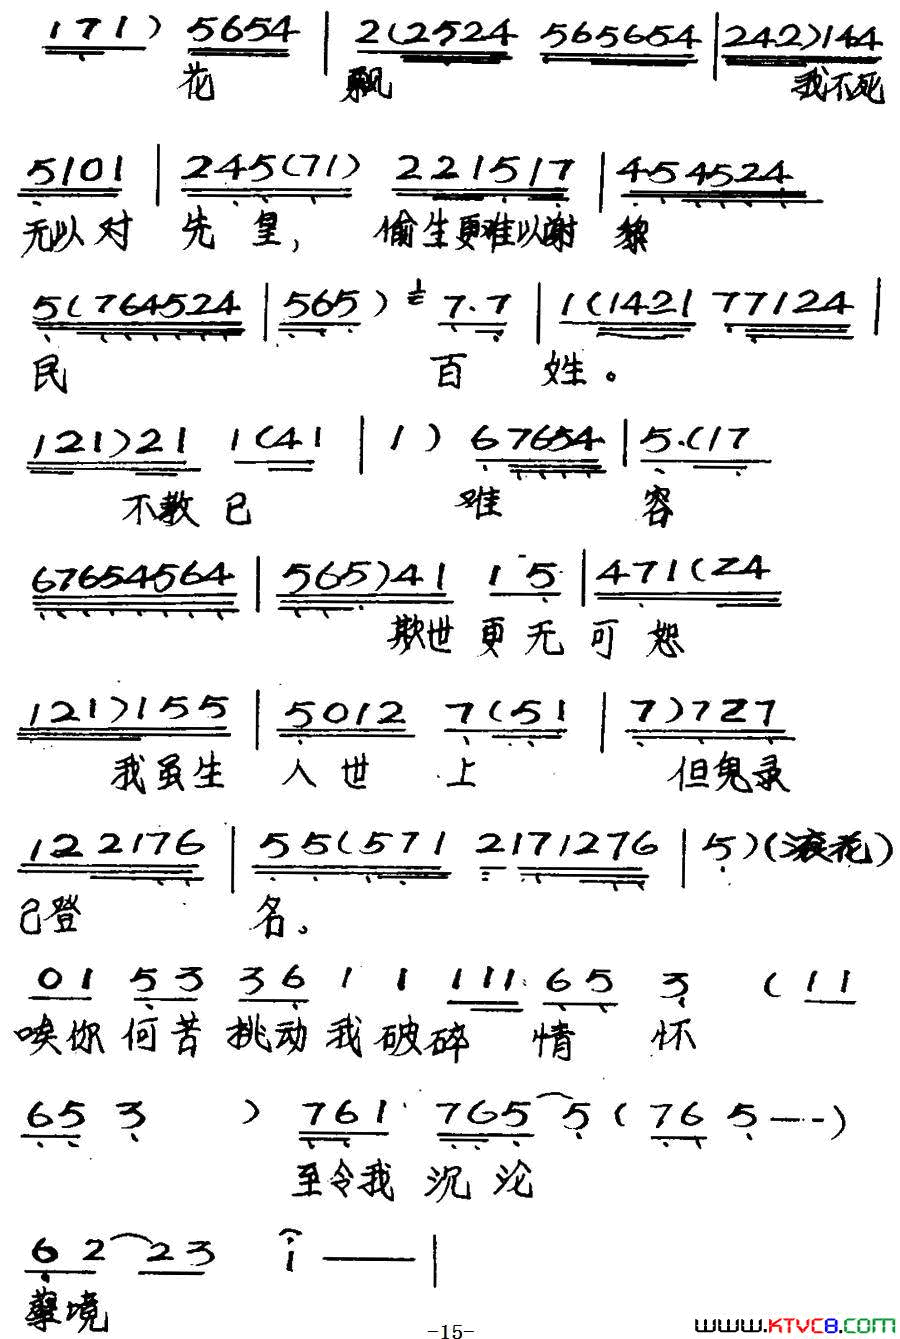 171) 5654 | 2(2524 565654 | 242)144
花 飘 我不死
5101 | 245(71) 221517 | 454524
无以对 先皇, 偷生更难以谢 黎
5(764524 | 565) 7.7 | 1(1421 77124 |
民 百 姓。
121)21 1(41 | 1) 67654 | 5.(17
不教已 难 容
67654564 | 565)41 15 | 471(24
欺世更无可恕
121)155 | 5012 7(51 | 7)727
我虽生 人世 上 但鬼录
122176 | 55(571 2171276 | 5)(滚花)
已登 名。
01 53 36 1 1 111 65 3 (11
唉你何苦挑动我破碎 情 怀
65 3 ) 761 765 5(76 5---)
至令我 沉沦
62 23 i —— |
孽境
-15-
WWW.KTVC8.COM